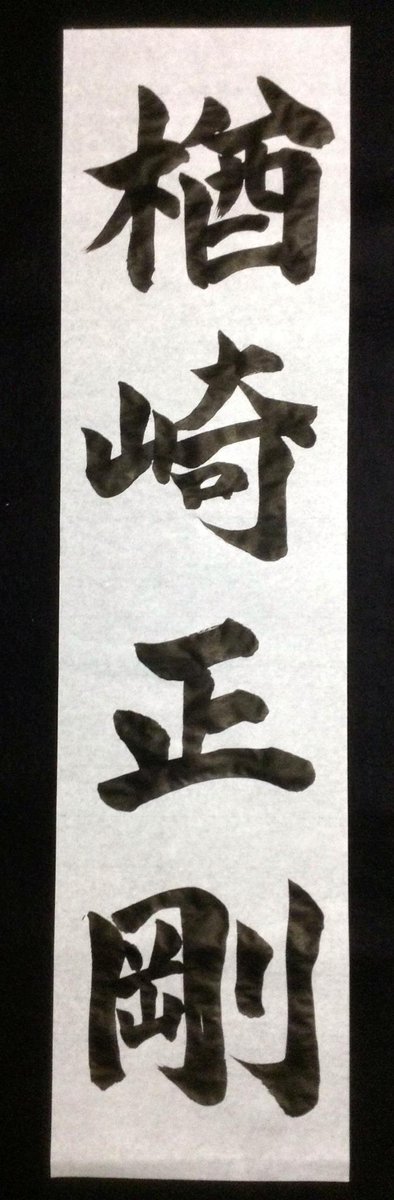 楢崎正剛